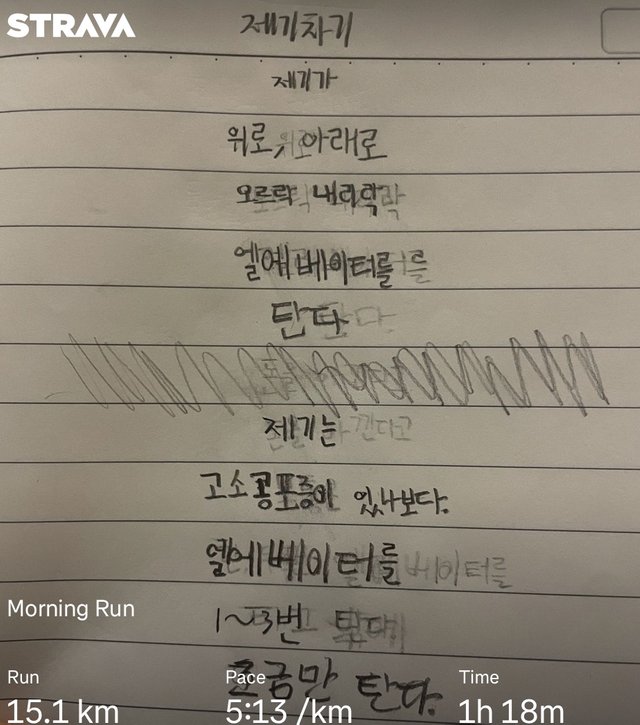 STRAVA
제기차기
제기가
위로, 아래로
오르락 내리락
엘에베이터를
탄다
제기는
고소공포증이 있나보다.
엘에베이터를
Morning Run
1~3번 탄다
조금만 탄다.
Run Pace Time
15.1 km 5:13 /km 1h 18m